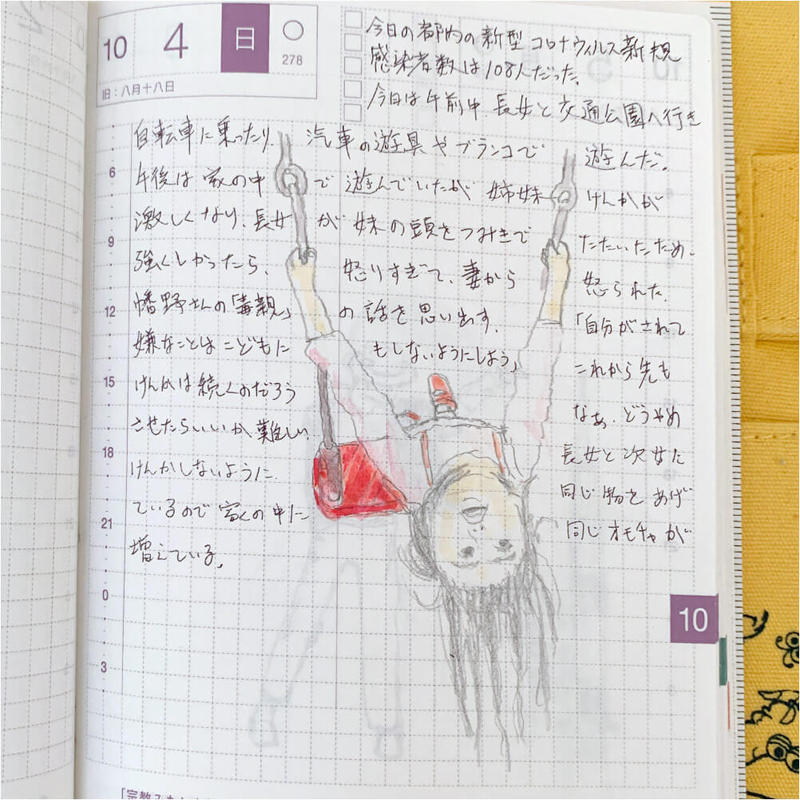 10 4 日 ○
278
旧：八月十八日
今日の都内の新型コロナウィルス新規
感染者数は108人だった。
今日は午前中 長女と交通公園へ行き
自転車に乗ったり、汽車の遊具やブランコで 遊んだ。
6
午後は家の中で遊んでいたが 姉妹けんかが
激しくなり、長女が妹の頭をつみきで たたいたため、
9
強くしかったら、怒りすぎて、妻から 怒られた。
12
幡野さんの「毒親」の話を思い出す。「自分がされて
嫌なことはこどもにもしないようにしよう」 これから先も
15
けんかは続くのだろう なぁ。どうやめ
させたらいいか難しい。 長女と次女に
18
けんかしないように 同じ物をあげ
21
ているので家の中に 同じオモチャが
増えている。
0
10
3